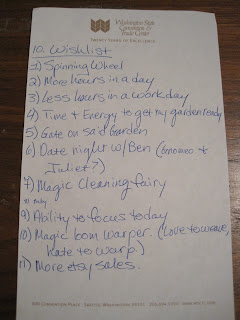 Washington State
Convention &
Trade Center
Years of Excellence
10. Wishlist
1) Spinning Wheel
2) More hours in a day
3) Less hours in a work day
4) Time + Energy to get my garden ready
5) Gate on said Garden
6) Date night w/ Ben (Gnomeo +
Juliet?)
7) Magic cleaning fairy
8)
9) Ability to focus today
10) Magic loom warper. (Love to weave,
Hate to warp.)
11) More etsy sales.
800 Convention Place Seattle, Washington